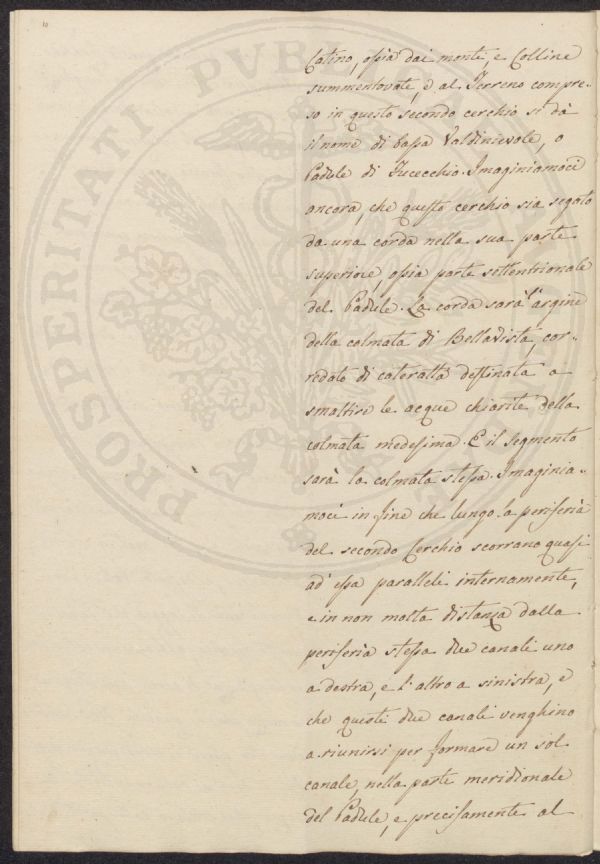 10
PROSPERITATI PUBLICAE
Catino, ossia dai monti, e Colline
summentovate, e al Terreno compre-
so in questo secondo cerchio si dà
il nome di bassa Valdinievole, o
Padule di Fucecchio. Imaginiamoci
ancora, che questo cerchio sia segato
da una corda nella sua parte
superiore, ossia parte settentrionale
del Padule. La corda sarà l'argine
della colmata di Bellavista, cor-
redato di cateratta destinata a
smaltire le acque chiarite della
colmata medesima. E il segmento
sarà la colmata stessa. Imaginia-
moci in fine che lungo la periferia
del secondo Cerchio scorrano quasi
ad' essa paralleli internamente,
e in non molta distanza dalla
periferia stessa due canali uno
a destra, e l'altro a sinistra, e
che questi due canali venghino
a riunirsi per formare un sol
canale, nella parte meridionale
del Padule, e precisamente al